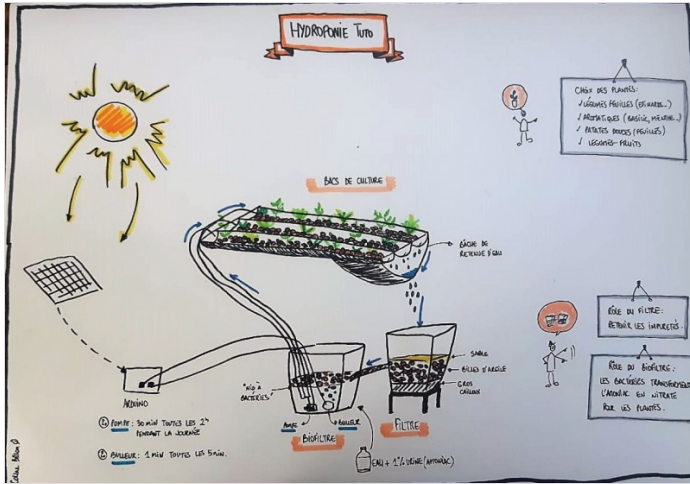 HYDROPONIE TUTO
CHOIX DES PLANTES:
✓ LÉGUMES FEUILLES (ÉPINARDS...)
✓ AROMATIQUES (BASILIC, MENTHE...)
✓ PATATES DOUCES (FEUILLES)
✓ LÉGUMES-FRUITS
BACS DE CULTURE
BÂCHE DE
RETENUE D'EAU
RÔLE DU FILTRE:
RETENIR LES IMPURETÉS.
RÔLE DU BIOFILTRE:
LES BACTÉRIES TRANSFORMENT
L'AMONIAC EN NITRATE
POUR LES PLANTES.
SABLE
BILLES D'ARGILE
GROS
CAILLOUX
"NID À
BACTÉRIES"
ARDUINO
POMPE
BULLEUR
BIOFILTRE
FILTRE
POMPE: 30 MIN TOUTES LES 2H
PENDANT LA JOURNÉE
BULLEUR: 1 MIN TOUTES LES 5 MIN.
EAU + 1% URINE (AMONIAC)